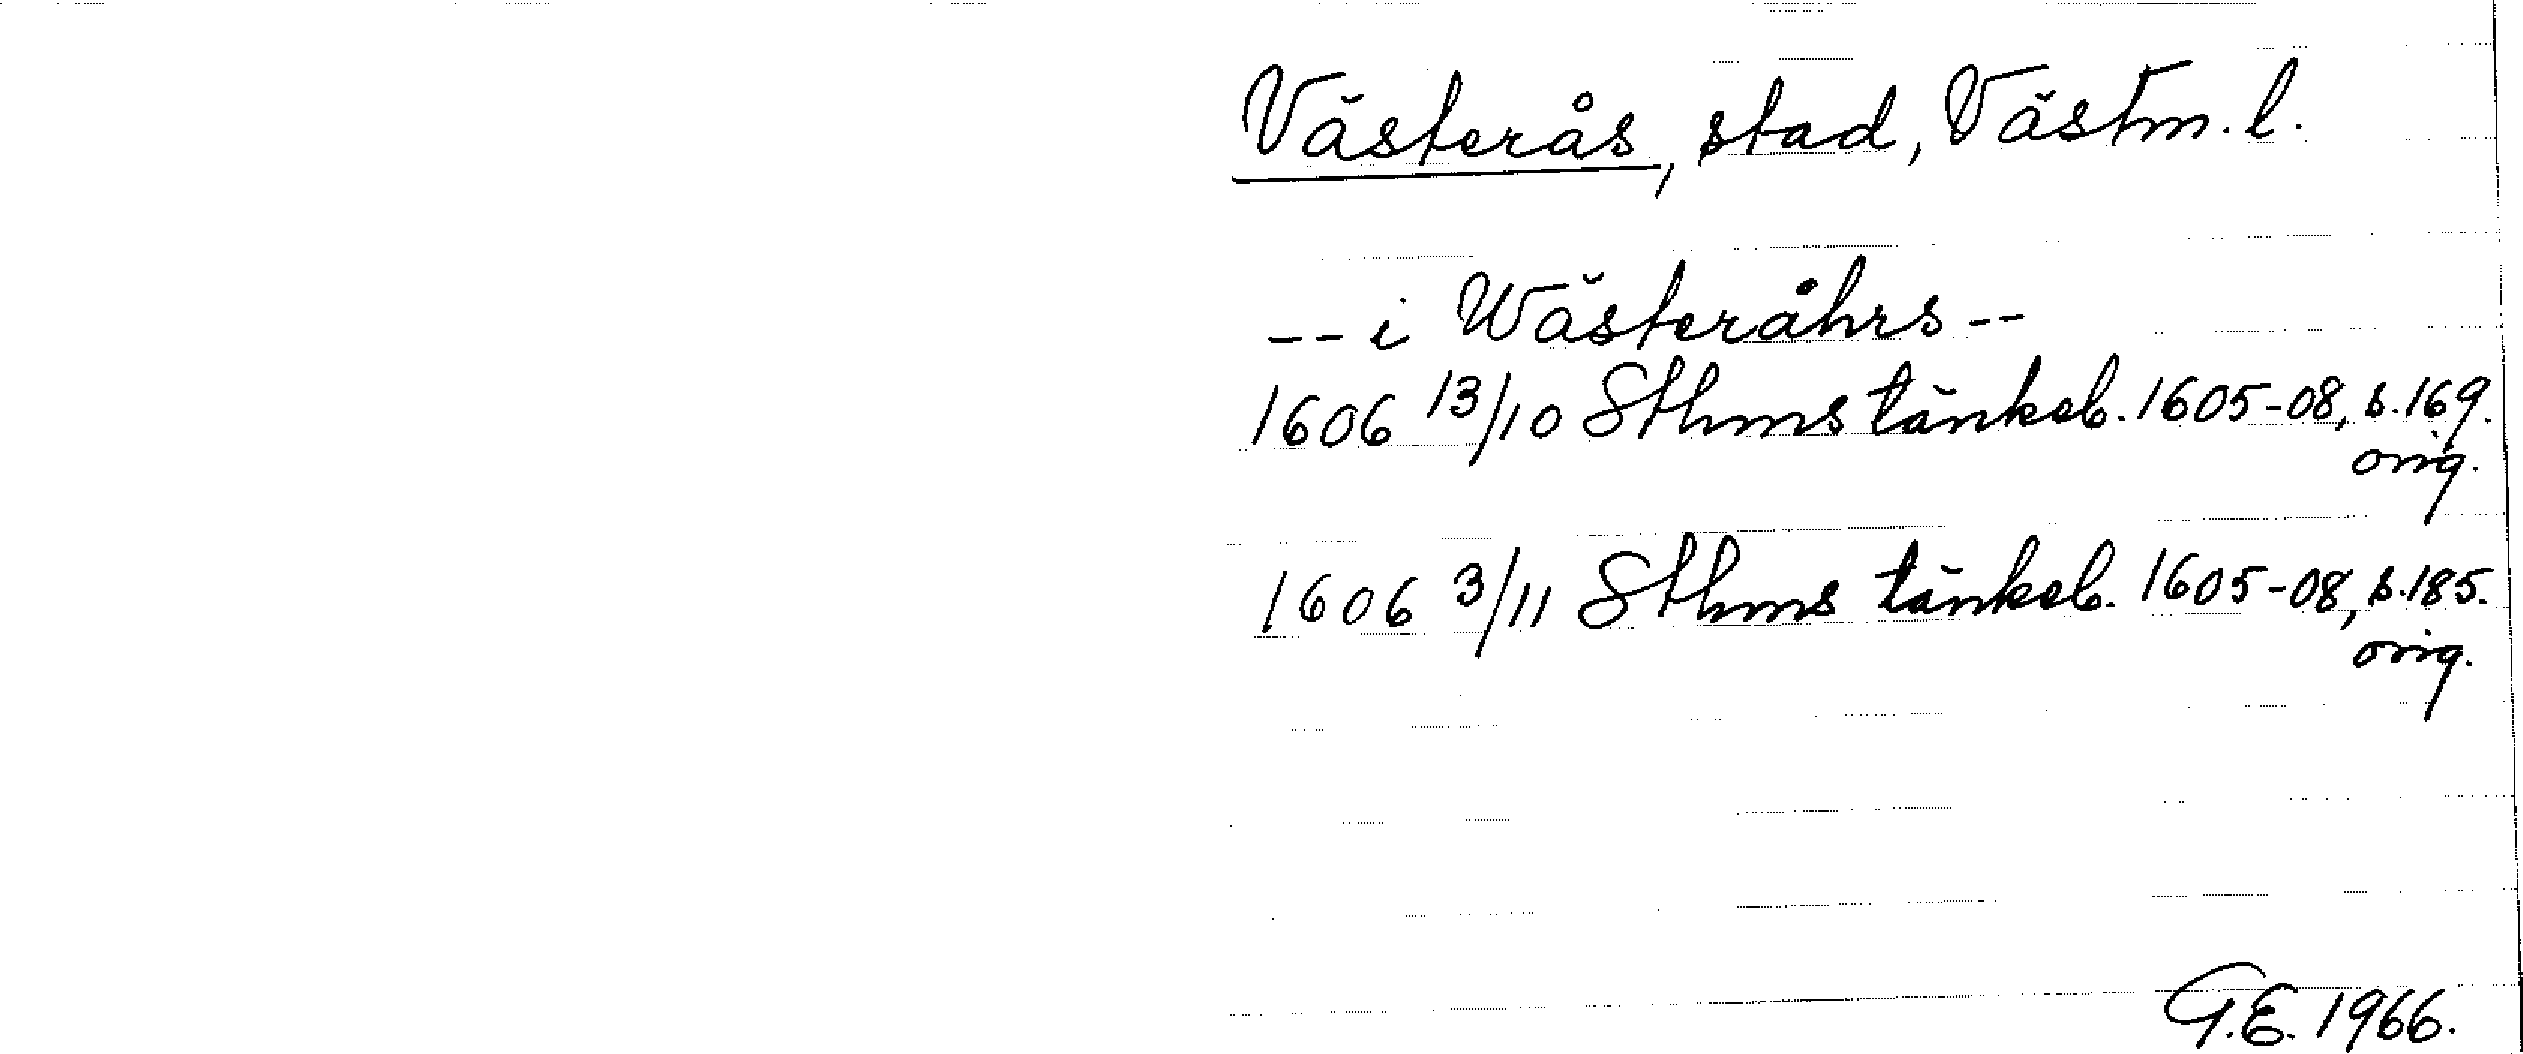 Västerås, stad, Västm. l.
-- i Wästeråhrs --
1606 13/10 Sthms tänkeb. 1605-08, s. 169.
orig.
1606 3/11 Sthms tänkeb. 1605-08, s. 185.
orig.
G.E. 1966.